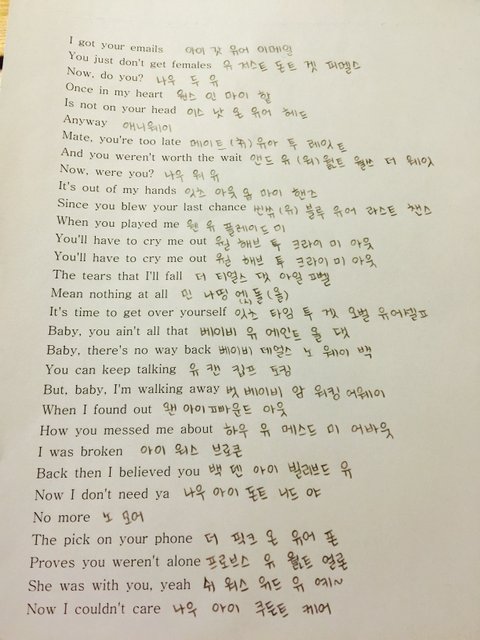 I got your emails 아이 갓 유어 이메일
You just don't get females 유 저스트 돈트 겟 피멜스
Now, do you? 나우 두 유
Once in my heart 원스 인 마이 할
Is not on your head 이스 낫 온 유어 헤드
Anyway 애니웨이
Mate, you're too late 메이트 (쥐) 유아 투 레잇트
And you weren't worth the wait 앤드 유 (워) 월트 월쓰 더 웨잇
Now, were you? 나우 워 유
It's out of my hands 잇츠 아웃 옵 마이 핸즈
Since you blew your last chance 씬쓰 (유) 블루 유어 라스트 챈스
When you played me 웬 유 플레이드 미
You'll have to cry me out 유월 해브 투 크라이 미 아웃
You'll have to cry me out 유월 해브 투 크라이 미 아웃
The tears that I'll fall 더 티얼스 댓 아일 뽈
Mean nothing at all 민 나띵 엣 돌 (올)
It's time to get over yourself 잇츠 타임 투 겟 오벌 유어셀프
Baby, you ain't all that 베이비 유 에인트 올 댓
Baby, there's no way back 베이비 데얼스 노 웨이 백
You can keep talking 유 캔 킵프 토킹
But, baby, I'm walking away 벗 베이비 암 워킹 어웨이
When I found out 웬 아이 빠운드 아웃
How you messed me about 하우 유 메스드 미 어바웃
I was broken 아이 워스 브로큰
Back then I believed you 백 덴 아이 빌리브드 유
Now I don't need ya 나우 아이 돈트 니드 야
No more 노 모어
The pick on your phone 더 픽크 온 유어 폰
Proves you weren't alone 프로브스 유 월트 얼론
She was with you, yeah 쉬 워스 위드 유 예~
Now I couldn't care 나우 아이 쿠든트 케어